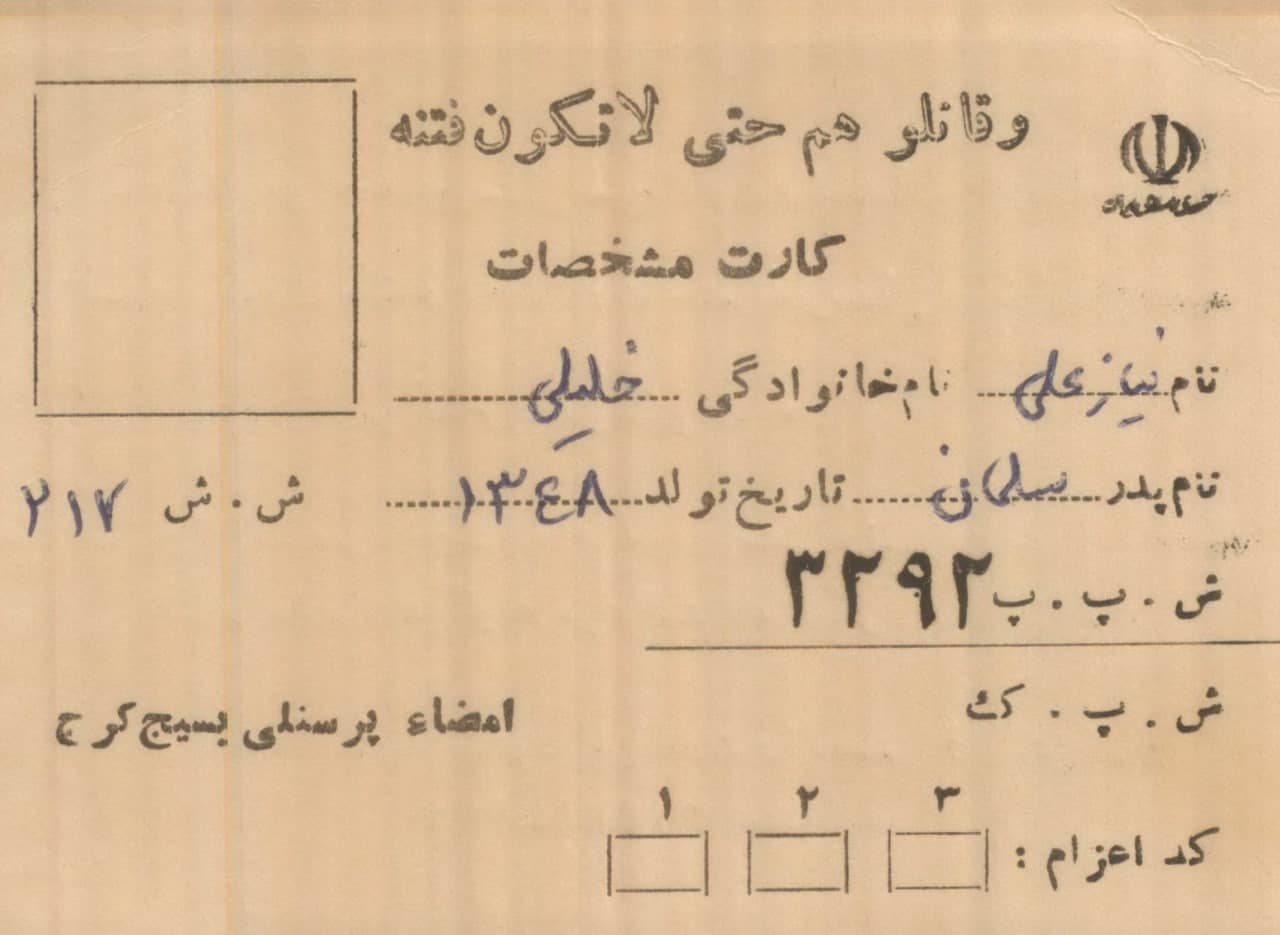 وقاتلو هم حتی لا تکون فتنه
جمهوری اسلامی ایران
کارت مشخصات
نام نیازعلی نام خانوادگی خلیلی
نام پدر سلمان تاریخ تولد ۱۳۴۸ ش . ش ۲۱۷
ش . پ . پ ۳۲۹۲
ش . پ . ک
امضاء پرسنلی بسیج کرج
۳ ۲ ۱
کد اعزام :